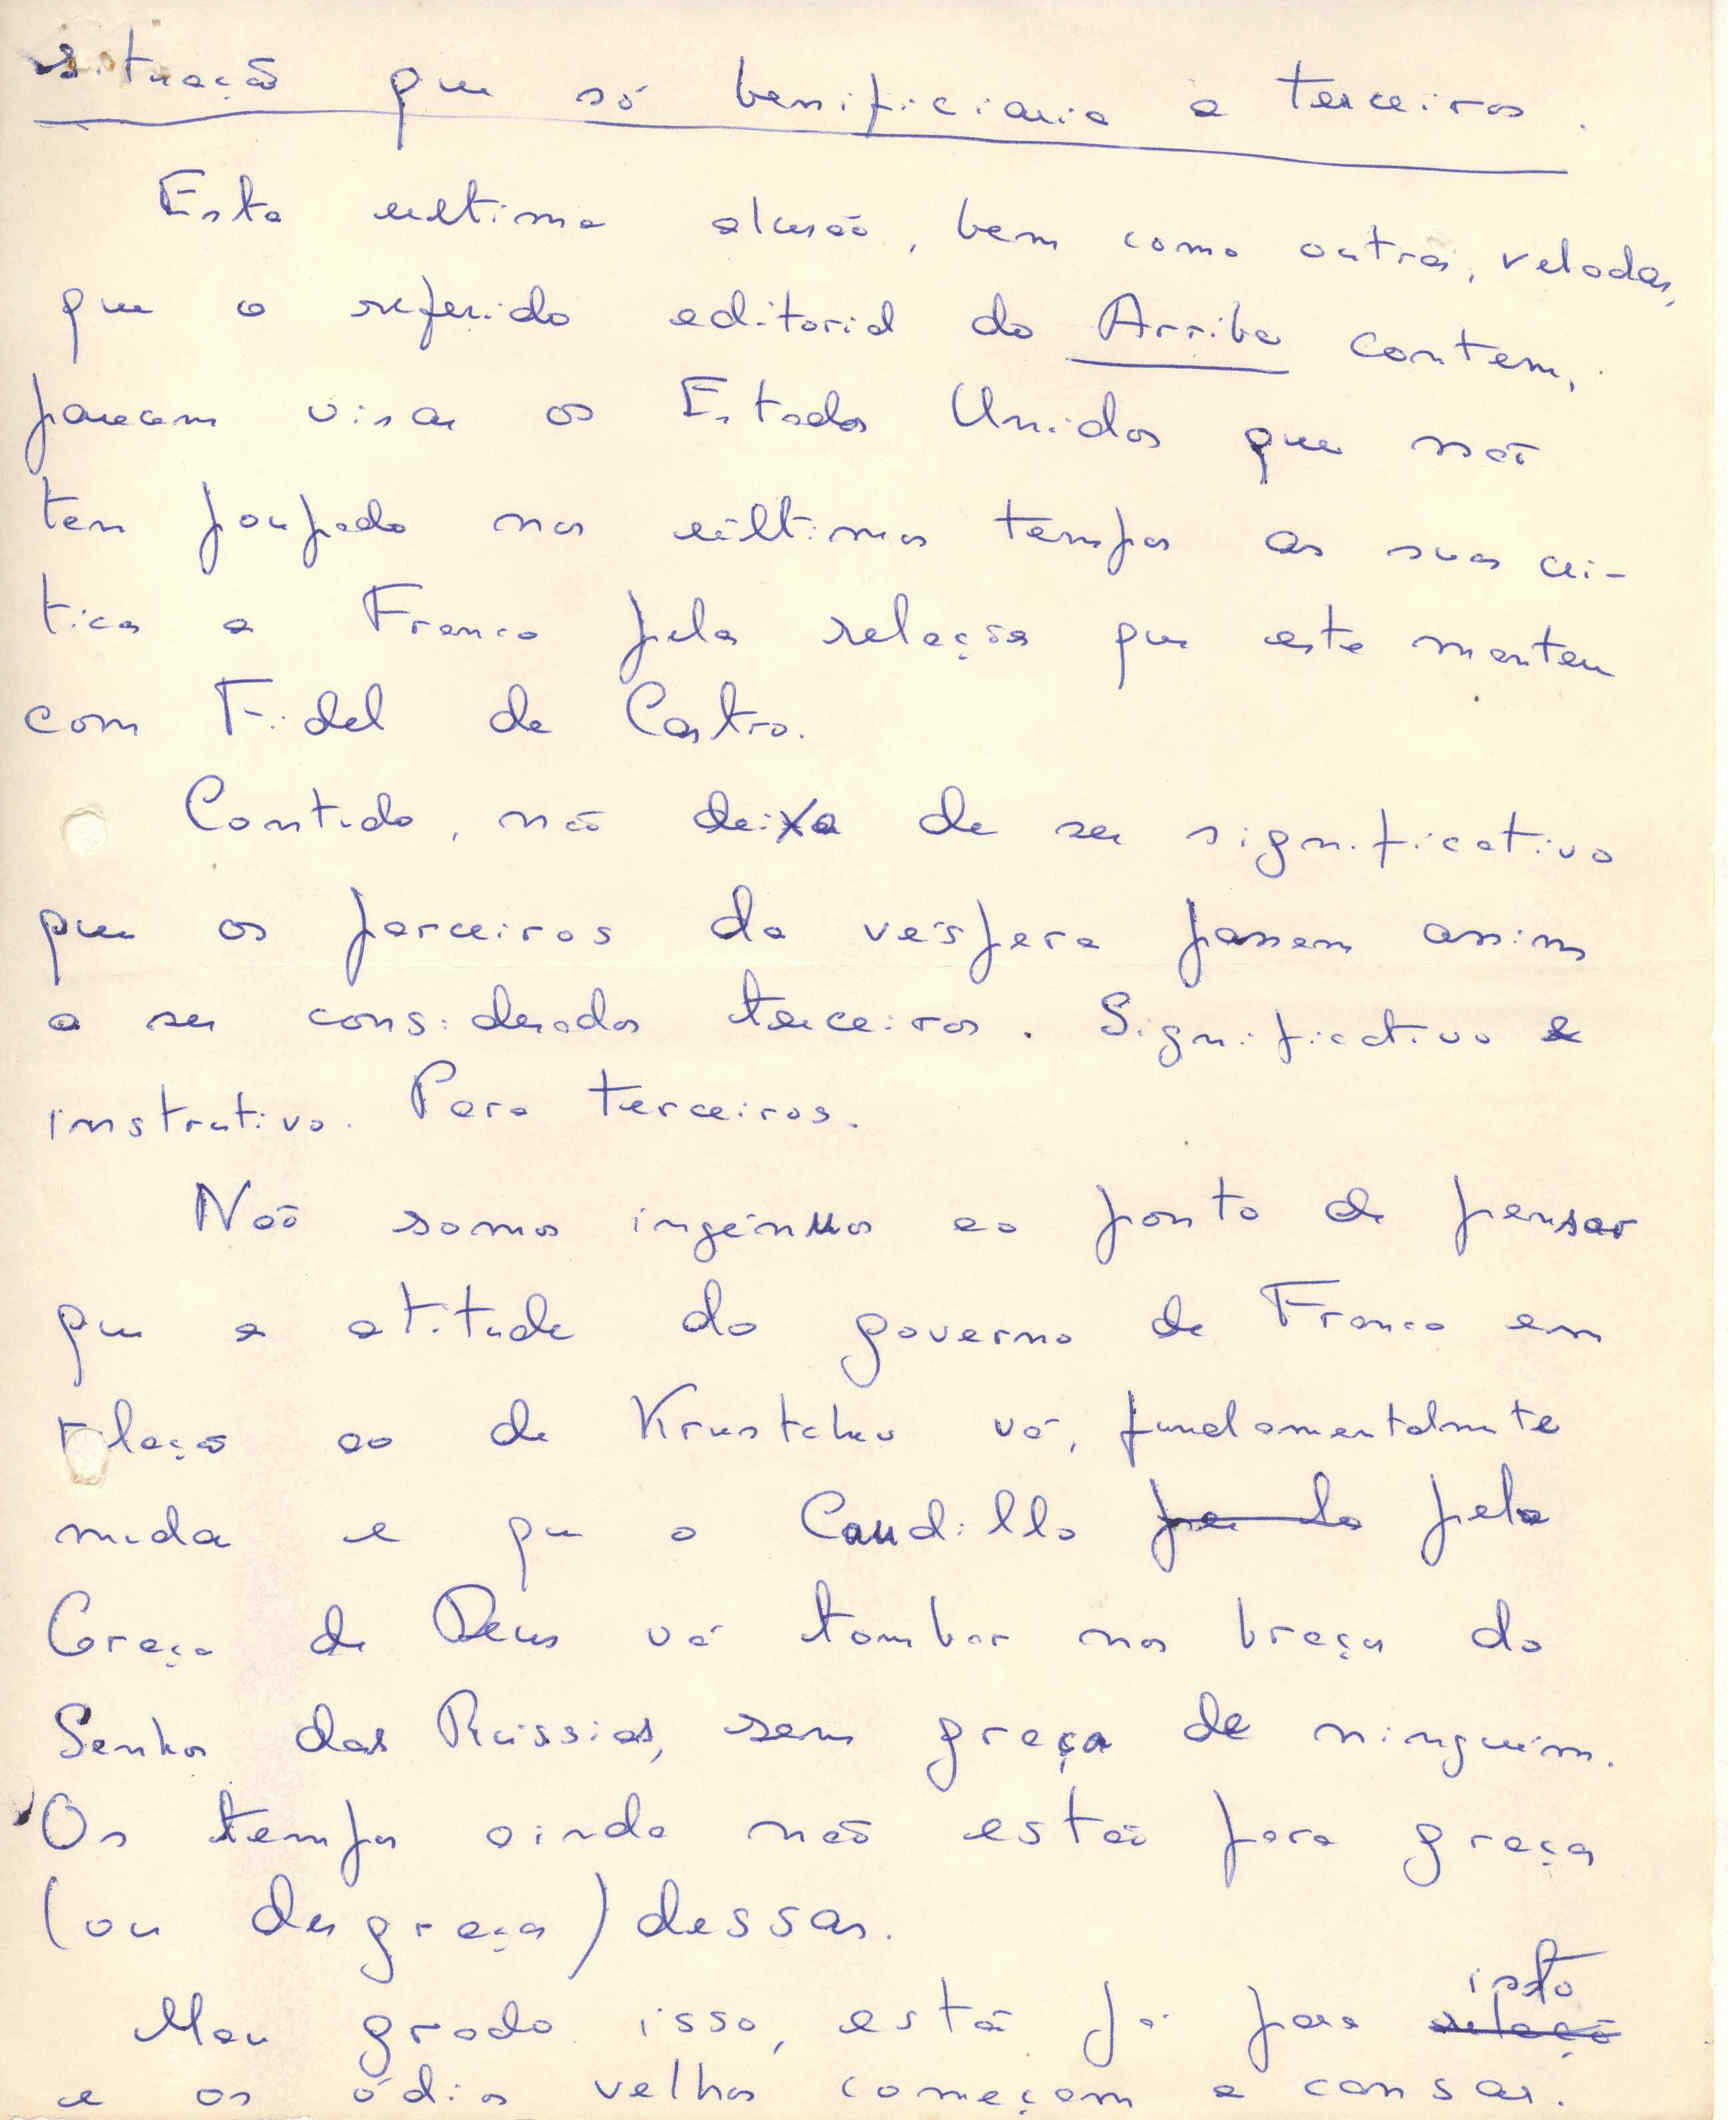 situação que só benificiaria a terceiros.
Esta ultima alusão, bem como outras, veladas,
que o referido editorial do Arriba contem,
parecem visar os Estados Unidos que não
tem poupado nos últimos tempos as suas crí-
ticas a Franco pelas relações que este mantem
com Fidel de Castro.
Contudo, não deixa de ser significativo
que os parceiros da véspera passem assim
a ser considerados terceiros. Significativo e
instrutivo. Para terceiros.
Não somos ingénuos ao ponto de pensar
que a atitude do governo de Franco em
relação ao de Krustchev vá, fundamentalmente
mudar e que o Caudillo pela
Graça de Deus vá tombar nos braços do
Senhor das Rússias, sem graça de ninguém.
Os tempos ainda não estão para graças
(ou desgraças) dessas.
Mau grado isso, estão já para isto
e os ódios velhos começam a cansar.